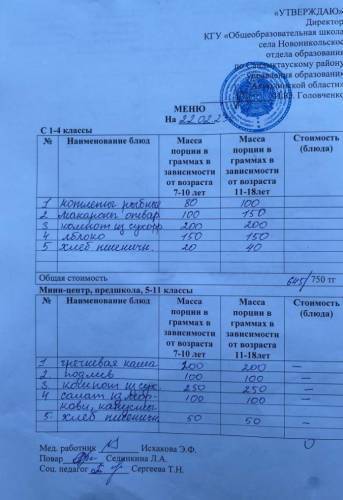 «УТВЕРЖДАЮ»
Директор
КГУ «Общеобразовательная школа
села Новоникольское
отдела образования
по Сандыктаускому району
управления образования
Акмолинской области»
Головченко
МЕНЮ
На 22.02.23
С 1-4 классы
№ Наименование блюд Масса порции в граммах в зависимости от возраста 7-10 лет Масса порции в граммах в зависимости от возраста 11-18лет Стоимость (блюда)
1 котлеты рыбные 80 100
2 макароны отвар. 100 150
3 компот из сухофр 200 200
4 яблоко 150 150
5 хлеб пшеничн. 20 40
Общая стоимость 645/750 тг
Мини-центр, предшкола, 5-11 классы
№ Наименование блюд Масса порции в граммах в зависимости от возраста 7-10 лет Масса порции в граммах в зависимости от возраста 11-18лет Стоимость (блюда)
1 гречневая каша 200 200 –
2 подлив 100 100 –
3 компот из сух. 250 250 –
4 салат из мор- 100 100 –
кови, капусты
5 хлеб пшеничн. 50 50 –
Мед. работник Исхакова Э.Ф.
Повар Сединкина Л.А.
Соц. педагог Сергеева Т.Н.